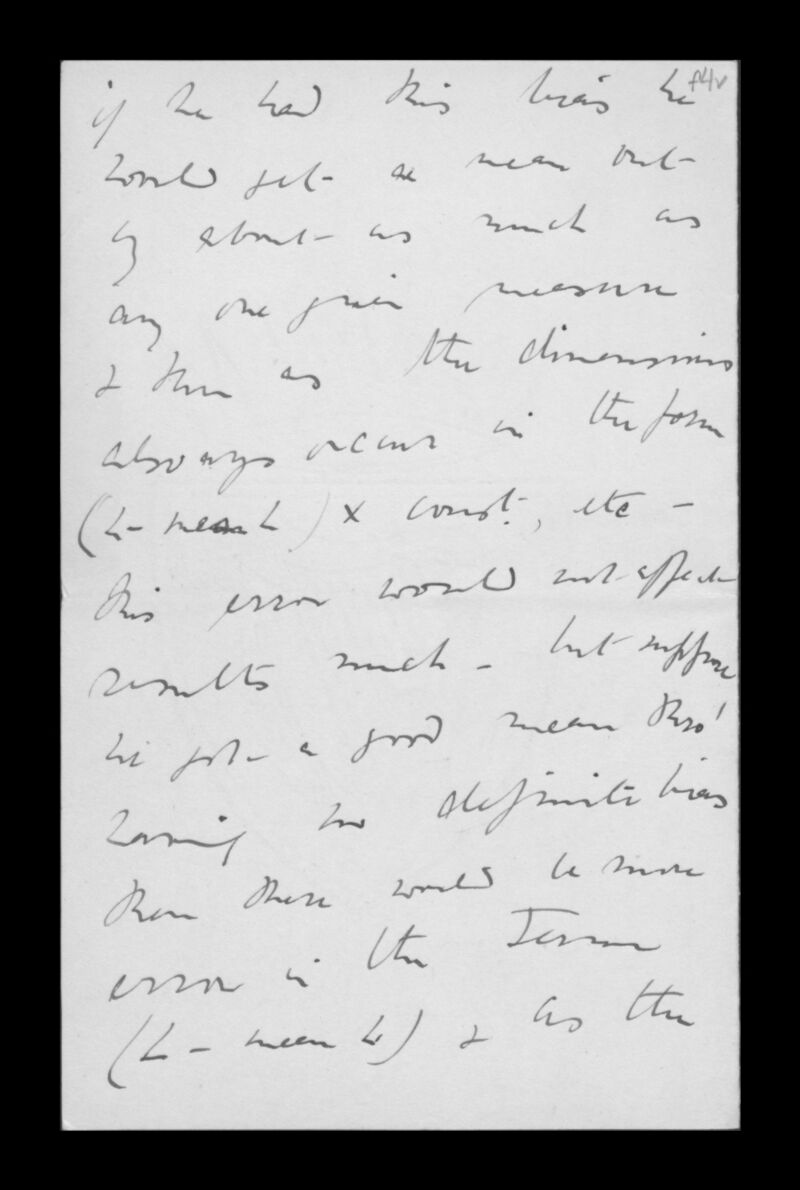 f4v
if he had this bias he
would get a mean out
by about as much as
any one given measure
& then as the dimensions
always occur in the form
(L - mean L) x const., etc -
this error would not affect
results much - but suppose
he got a good mean thro'
having no definite bias
then there would be more
error in the
(L - mean L) & as the